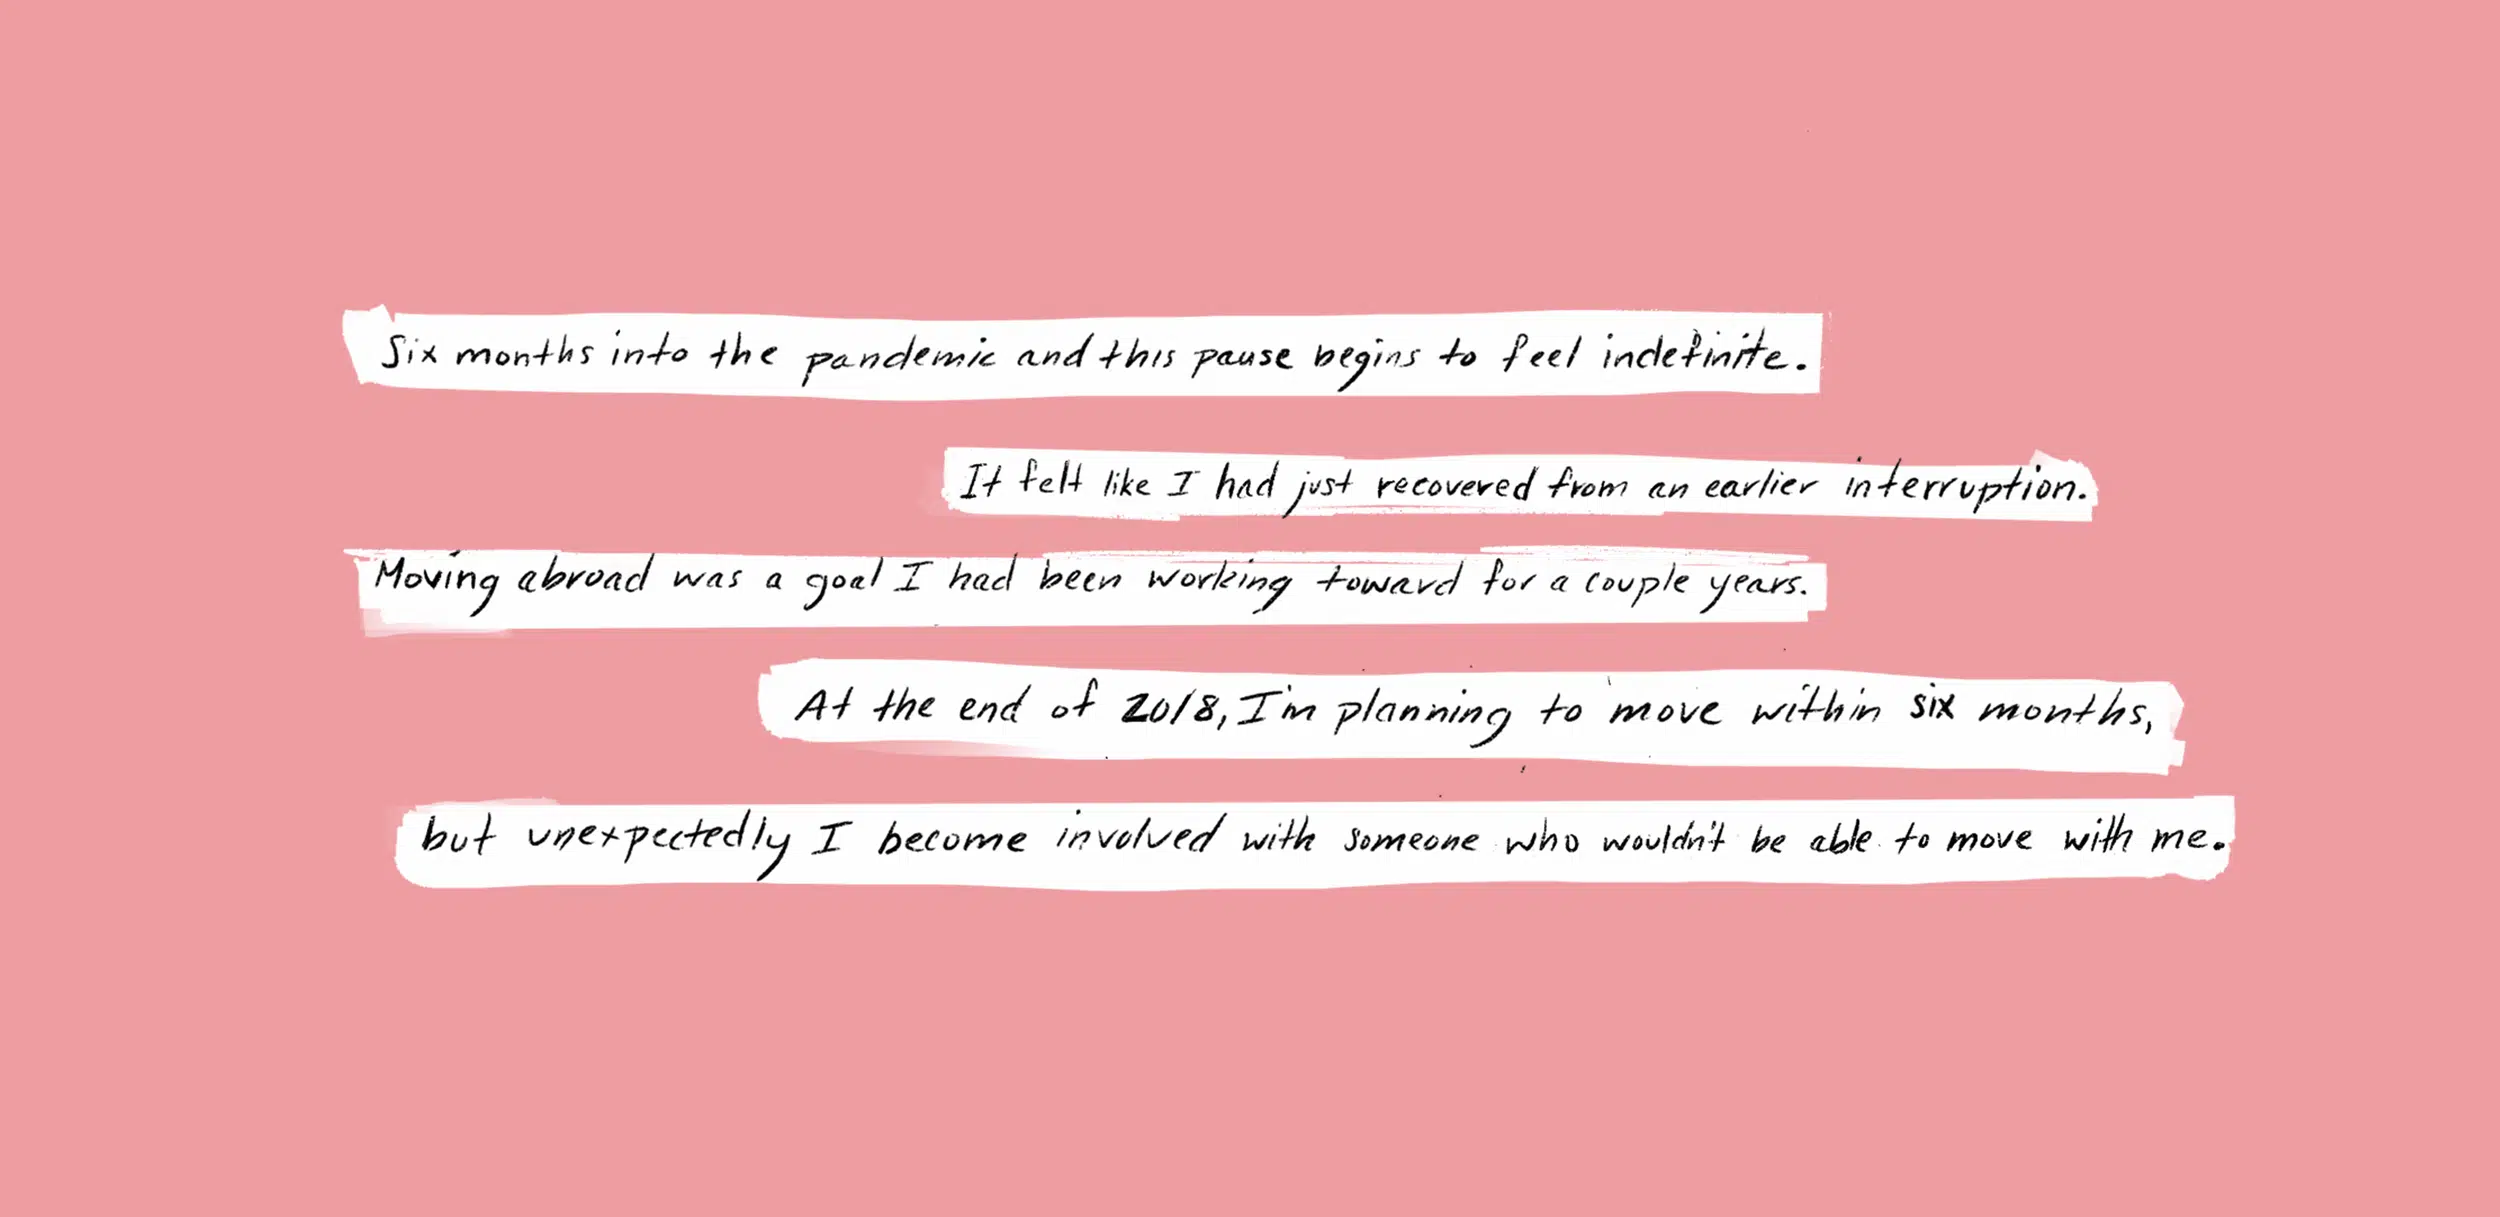 Six months into the pandemic and this pause begins to feel indefinite.
It felt like I had just recovered from an earlier interruption.
Moving abroad was a goal I had been working toward for a couple years.
At the end of 2018, I'm planning to move within six months,
but unexpectedly I become involved with someone who wouldn't be able to move with me.